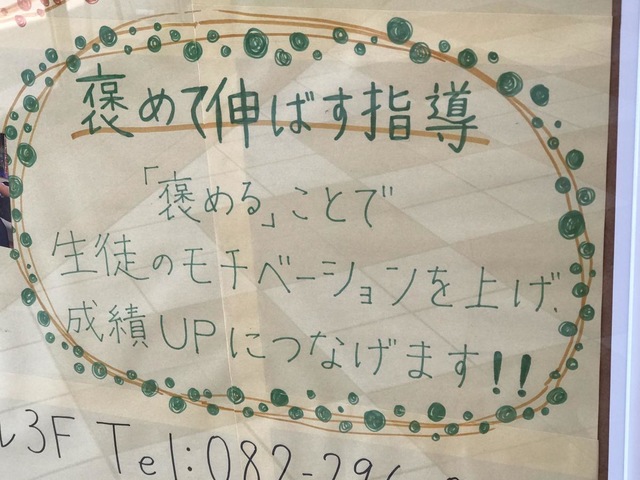 褒めて伸ばす指導
「褒める」ことで
生徒のモチベーションを上げ、
成績UPにつなげます!!
ル3F Tel:082-296